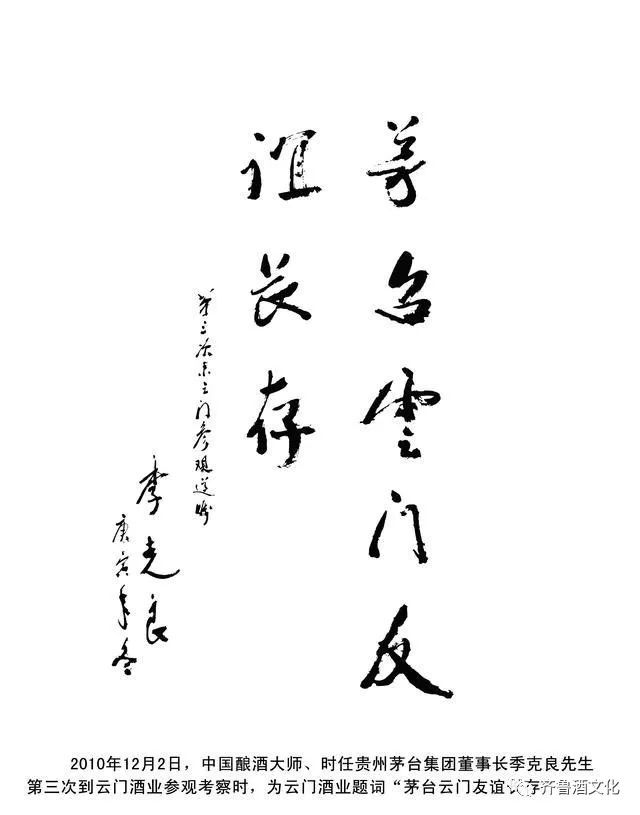 茅台雲门友
谊长存
第三次来云门参观
季克良
庚寅年冬
2010年12月2日，中国酿酒大师、时任贵州茅台集团董事长季克良先生
第三次到云门酒业参观考察时，为云门酒业题词“茅台云门友谊长存
齐鲁酒文化